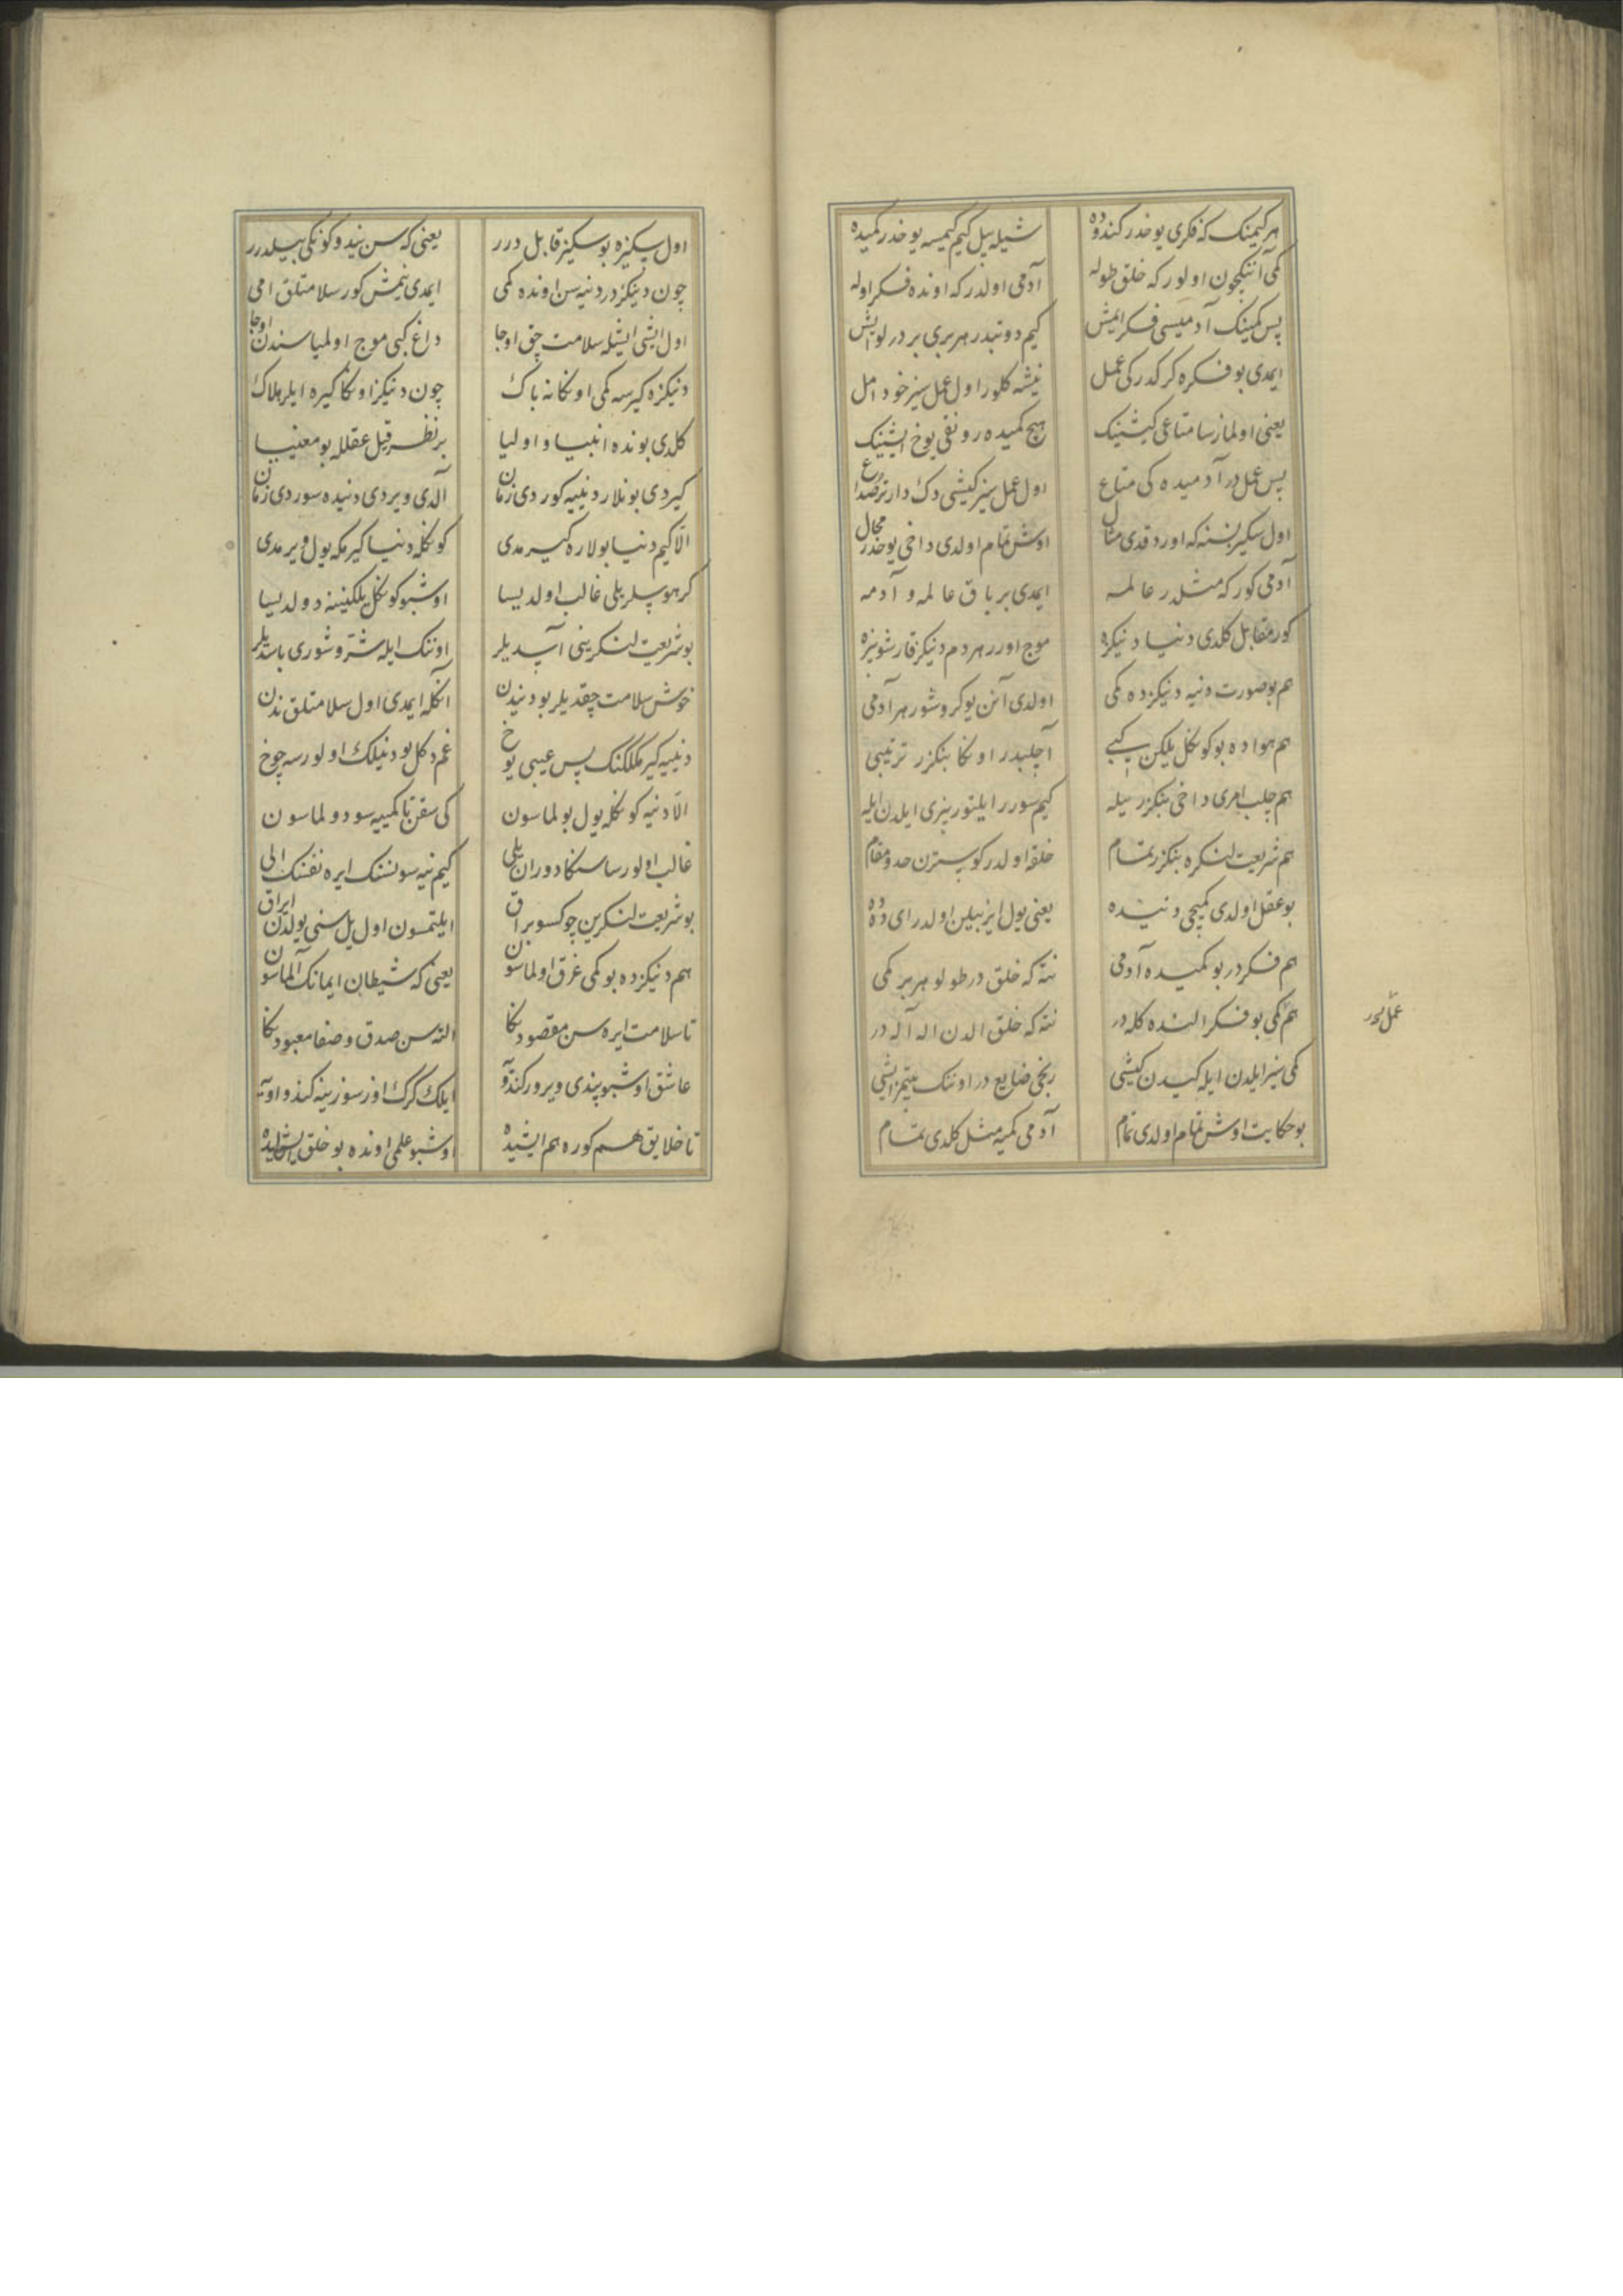 هر كیمنك كه فكری یوخدر كندوده شیله بیل كیم كیمسه یوخدر كمیده
كمی آننكچون اولور كه خلق طوله آدمی اولدر كه اونده فكر اوله
پس كمینك آدمیسی فكر ایمش كیم دوتبدر هر بری بر درلو ایش
ایمدی بو فكره كركدر كی عمل نیشه كلور اول عمل سیز خود امل
یعنی اولمازسا متاعی كیشینك هیچ كمیده رونقی یوخ ایشینك
پس عمل در آدمیده كی متاع اول عمل سیز كیشی دك دارتر صداع
اول سكیز نسنه كه اورد قدی مثال اوش تمام اولدی داخی یوخدر مجال
آدمی كور كه مثلدر عالمه ایمدی بر باق عالمه و آدمه
كور مقابل كلدی دنیا دنیكزه موج اورر هر دم دنیكز قارشو بیزه
هم بو صورت دنیه دنیكزده كمی اولدی آنن یوكروشور هر آدمی
هم هواده بو كونكل یلكن كیبی آچلبدر اونكا بنكزر ترتیبی
هم چلب امری داخی بنكزر ییله كیم سورر ایلتور بیزی ایلدن ایله
هم شریعت لنكره بنكزر تمام خلقه اولدر كوسترن حد و مقام
بو عقل اولدی كمیچی دنیده یعنی یول ایز بیلن اولدر ای دده
هم فكردر بو كمیده آدمی نته كه خلق در طولو هر بر كمی
هم كمی بو فكر النده كله در نته كه خلق الدن اله آله در
عمل در
كمی سیز ایلدن ایله كیدن كیشی رنجی ضایع در اوننك بیتمز ایشی
بو حكایت اوش تمام اولدی تمام آدمی كمیه مثل كلدی تمام
اول سكیزه بو سكیز قابل درر یعنی كه سن نیدوكونكی بیلدرر
چون دنیكزدر دنیه سن اونده كمی ایمدی نیمش كور سلامتلق امی
اول ایشی ایشله سلامت چق اوجا داغ كبی موج اولمیا سندن اوجا
دنیكزه كیرسه كمی اونكا نه باك چون دنیكز اونكا كیره ایلر هلاك
كلدی بونده انبیا و اولیا بر نظر قیل عقلله بو معنییا
كیردی بونلار دنییه كوردی زمان آلدی ویردی دنیده سوردی زمان
الا كیم دنیا بولاره كیرمدی كونكله دنیا كیرمكه یول ویرمدی
كر هوسلر یلی غالب اولدیسا اوشبو كونكل یلكنینه دولدیسا
بو شریعت لنكرینی آسدیلر اوننك ایله شر و شوری باسدیلر
خوش سلامت چقدیلر بو دنیدن آنكله ایمدی اول سلامتلق ندن
دنییه كیرمكلكنك پس عیبی یوخ غم دكل بو دنیلك اولورسه چوخ
الا دنیه كونكله یول بولماسون كی سقن تا كمییه سو دولماسون
غالب اولورسا سنكا دوران یلی كیم نیه سونسنك ایره نفسنك الی
بو شریعت لنكرین چوكسو براق ایلتمسون اول یل سنی یولدن ایراق
هم دنیكزده بو كمی غرق اولماسون یعنی كه شیطان ایمانك آلماسون
تا سلامت ایره سن مقصودنكا الته سن صدق و صفا معبودنكا
عاشق اوشبو پندی ویرور كندو ایلك كرك اوز سوزینه كندو
تا خلایق هم كوره هم ایشیده اوشبو علمی اونده بو خلق